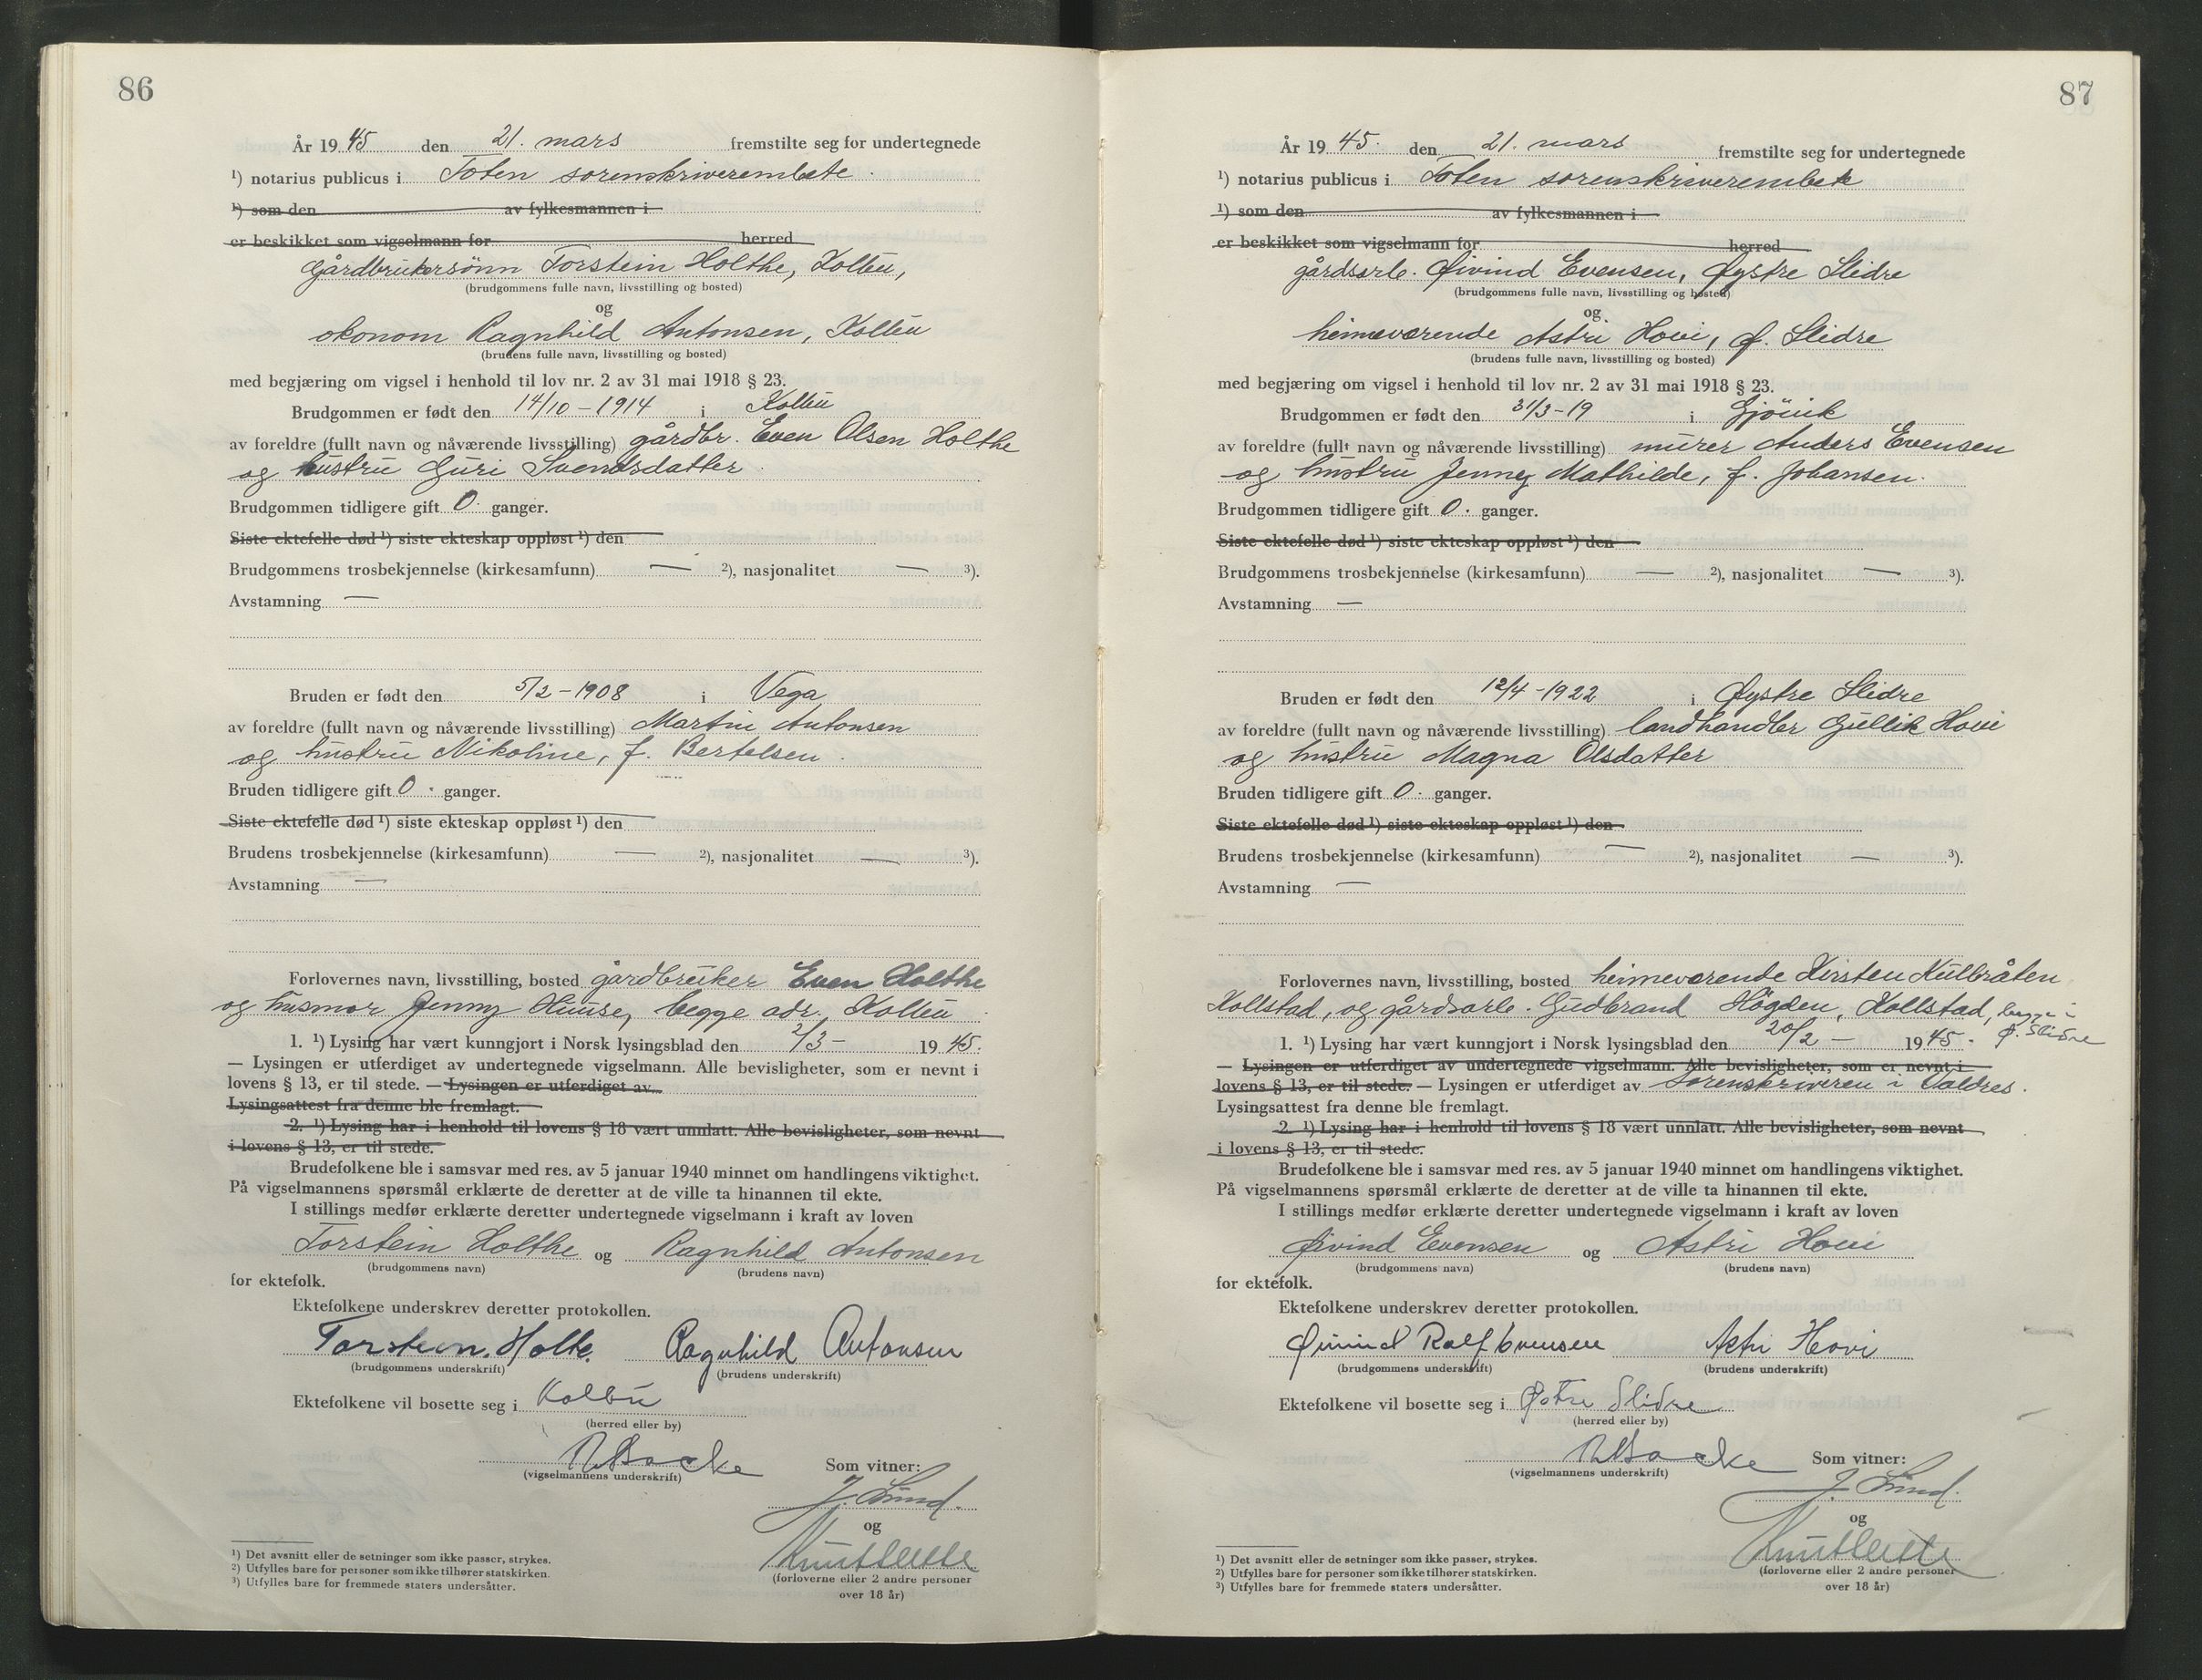 86
År 19 45 den 21. mars fremstilte seg for undertegnede
¹) notarius publicus i Toten sorenskriverembete
¹) som den av fylkesmannen i
er beskikket som vigselmann for herred
Gårdbrukersönn Torstein Holthe, Kolbu,
(brudgommens fulle navn, livsstilling og bosted)
og
økonom Ragnhild Antonsen, Kolbu
(brudens fulle navn, livsstilling og bosted)
med begjæring om vigsel i henhold til lov nr. 2 av 31 mai 1918 § 23.
Brudgommen er født den 14/10 - 1914 i Kolbu
av foreldre (fullt navn og nåværende livsstilling) gårdbr. Even Olsen Holthe
og hustru Guri Svendsdatter
Brudgommen tidligere gift 0. ganger.
Siste ektefelle død ¹) siste ekteskap oppløst ¹) den
Brudgommens trosbekjennelse (kirkesamfunn) — ²), nasjonalitet — ³).
Avstamning —
Bruden er født den 5/2 - 1908 i Vega
av foreldre (fullt navn og nåværende livsstilling) Martin Antonsen
og hustru Nikoline, f. Bertelsen
Bruden tidligere gift 0 . ganger.
Siste ektefelle død ¹) siste ekteskap oppløst ¹) den
Brudens trosbekjennelse (kirkesamfunn) — ²), nasjonalitet — ³).
Avstamning —
Forlovernes navn, livsstilling, bosted gårdbruker Even Holthe
og husmor Jenny Huuse, begge adr. Kolbu
1. ¹) Lysing har vært kunngjort i Norsk lysingsblad den 2/3 - 19 45.
— Lysingen er utferdiget av undertegnede vigselmann. Alle bevisligheter, som er nevnt i
lovens § 13, er til stede. — Lysingen er utferdiget av
Lysingsattest fra denne ble fremlagt.
2. ¹) Lysing har i henhold til lovens § 18 vært unnlatt. Alle bevisligheter, som nevnt
i lovens § 13, er til stede.
Brudefolkene ble i samsvar med res. av 5 januar 1940 minnet om handlingens viktighet.
På vigselmannens spørsmål erklærte de deretter at de ville ta hinannen til ekte.
I stillings medfør erklærte deretter undertegnede vigselmann i kraft av loven
Torstein Holthe og Ragnhild Antonsen
(brudgommens navn) (brudens navn)
for ektefolk.
Ektefolkene underskrev deretter protokollen.
Torstein. Holte. Ragnhild Antonsen
(brudgommens underskrift) (brudens underskrift)
Ektefolkene vil bosette seg i Kolbu
(herred eller by)
(vigselmannens underskrift) Som vitner:
J. Lund.
og
(forloverne eller 2 andre personer
over 18 år)
¹) Det avsnitt eller de setninger som ikke passer, strykes.
²) Utfylles bare for personer som ikke tilhører statskirken.
³) Utfylles bare for fremmede staters undersåtter.
87
År 19 45. den 21. mars fremstilte seg for undertegnede
¹) notarius publicus i Toten sorenskriverembete
¹) som den av fylkesmannen i
er beskikket som vigselmann for herred
gårdsarb. Øivind Evensen, Øystre Slidre
(brudgommens fulle navn, livsstilling og bosted)
og
heimeværende Astri Hovi, Ø. Slidre
(brudens fulle navn, livsstilling og bosted)
med begjæring om vigsel i henhold til lov nr. 2 av 31 mai 1918 § 23.
Brudgommen er født den 31/3 - 19 i Gjövik
av foreldre (fullt navn og nåværende livsstilling) murer Anders Evensen
og hustru Jenney Mathilde, f. Johansen.
Brudgommen tidligere gift 0. ganger.
Siste ektefelle død ¹) siste ekteskap oppløst ¹) den
Brudgommens trosbekjennelse (kirkesamfunn) — ²), nasjonalitet — ³).
Avstamning —
Bruden er født den 12/4 - 1922 i Øystre Slidre
av foreldre (fullt navn og nåværende livsstilling) landhandler Gullik Hovi
og hustru Magna Olsdatter
Bruden tidligere gift 0. ganger.
Siste ektefelle død ¹) siste ekteskap oppløst ¹) den
Brudens trosbekjennelse (kirkesamfunn) — ²), nasjonalitet — ³).
Avstamning —
Forlovernes navn, livsstilling, bosted heimeværende Kirsten Kulbråten
Kollstad, og gårdsarb. Gudbrand Högden, Kollstad, begge i
Ø. Slidre
1. ¹) Lysing har vært kunngjort i Norsk lysingsblad den 20/2 — 19 45.
— Lysingen er utferdiget av undertegnede vigselmann. Alle bevisligheter, som er nevnt i
lovens § 13, er til stede. — Lysingen er utferdiget av Sorenskriveren i Valdres.
Lysingsattest fra denne ble fremlagt.
2. ¹) Lysing har i henhold til lovens § 18 vært unnlatt. Alle bevisligheter, som nevnt
i lovens § 13, er til stede.
Brudefolkene ble i samsvar med res. av 5 januar 1940 minnet om handlingens viktighet.
På vigselmannens spørsmål erklærte de deretter at de ville ta hinannen til ekte.
I stillings medfør erklærte deretter undertegnede vigselmann i kraft av loven
Øivind Evensen og Astri Hovi
(brudgommens navn) (brudens navn)
for ektefolk.
Ektefolkene underskrev deretter protokollen.
Øivind Rolf Evensen Astri Hovi
(brudgommens underskrift) (brudens underskrift)
Ektefolkene vil bosette seg i Østre Slidre
(herred eller by)
(vigselmannens underskrift) Som vitner:
J. Lund.
og
(forloverne eller 2 andre personer
over 18 år)
¹) Det avsnitt eller de setninger som ikke passer, strykes.
²) Utfylles bare for personer som ikke tilhører statskirken.
³) Utfylles bare for fremmede staters undersåtter.